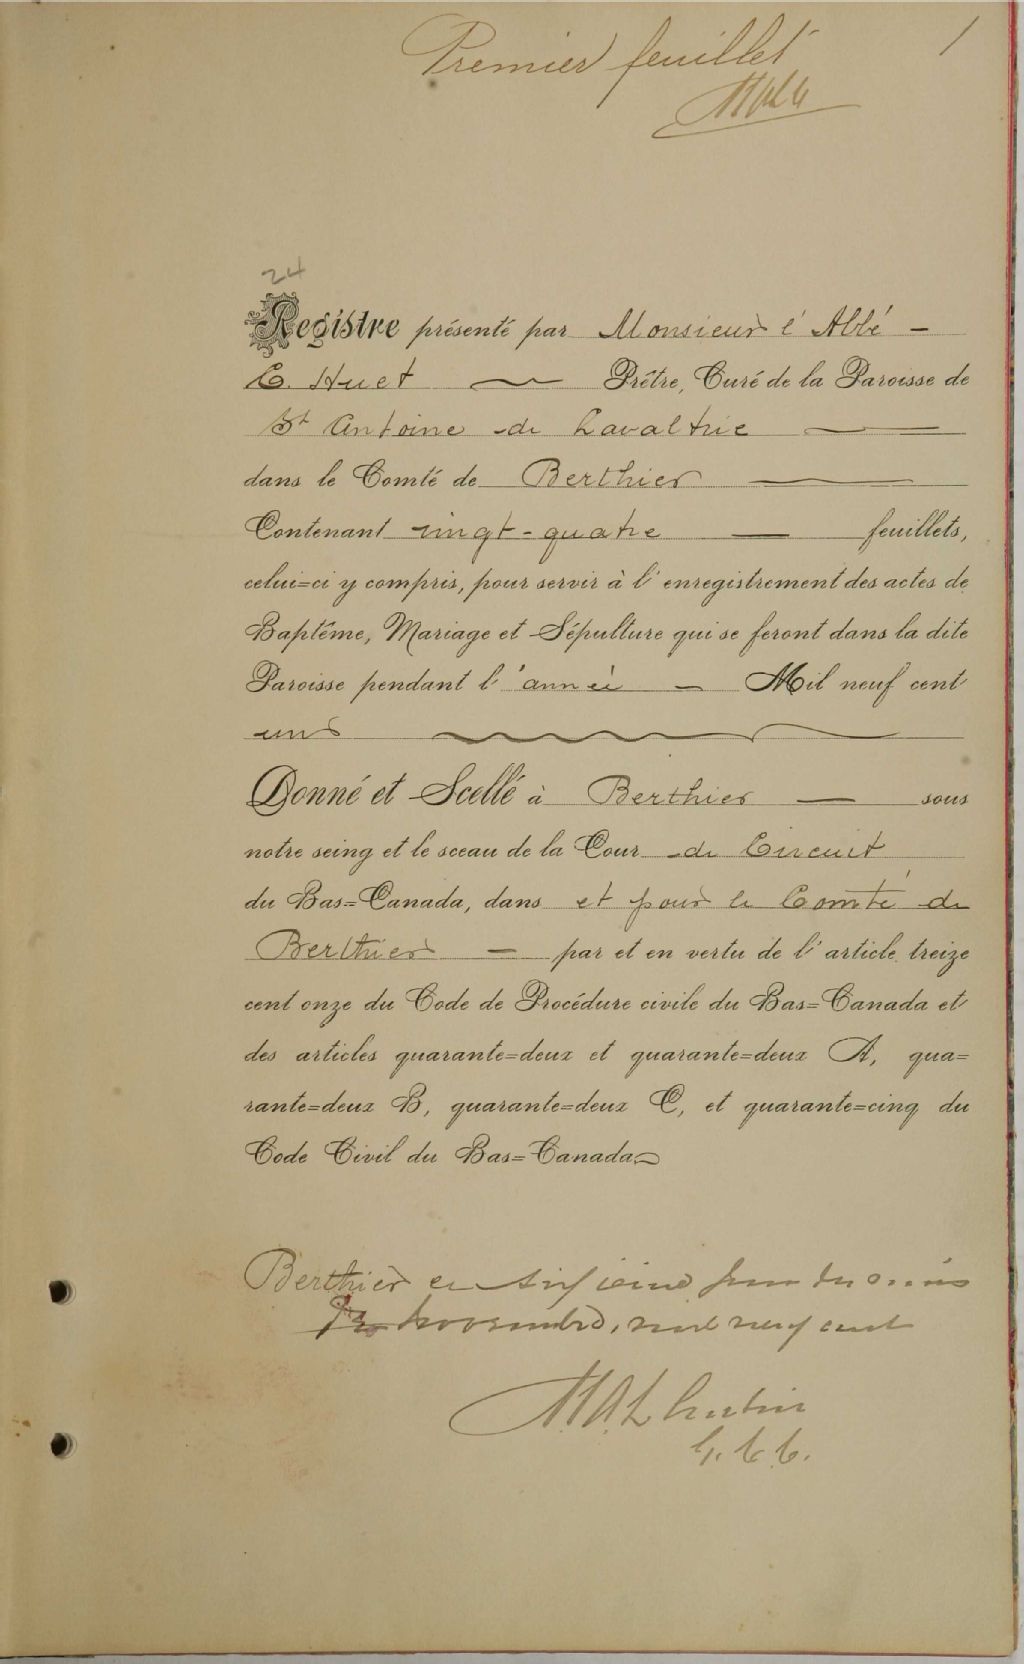 Premier feuillet 1
24
Registre présenté par Monsieur l'Abbé -
C. Huet Prêtre, Curé de la Paroisse de
St Antoine de Lavaltrie
dans le Comté de Berthier
Contenant vingt-quatre feuillets,
celui=ci y compris, pour servir à l'enregistrement des actes de
Baptême, Mariage et Sépulture qui se feront dans la dite
Paroisse pendant l'année - Mil neuf cent
un
Donné et Scellé à Berthier sous
notre seing et le sceau de la Cour de Circuit
du Bas=Canada, dans et pour le Comté de
Berthier - par et en vertu de l'article treize
cent onze du Code de Procédure civile du Bas=Canada et
des articles quarante=deux et quarante=deux A, qua=
rante=deux B, quarante=deux C, et quarante=cinq du
Code Civil du Bas=Canada
Berthier ce jour du mois
novembre, mil neuf cent
G. C. C.